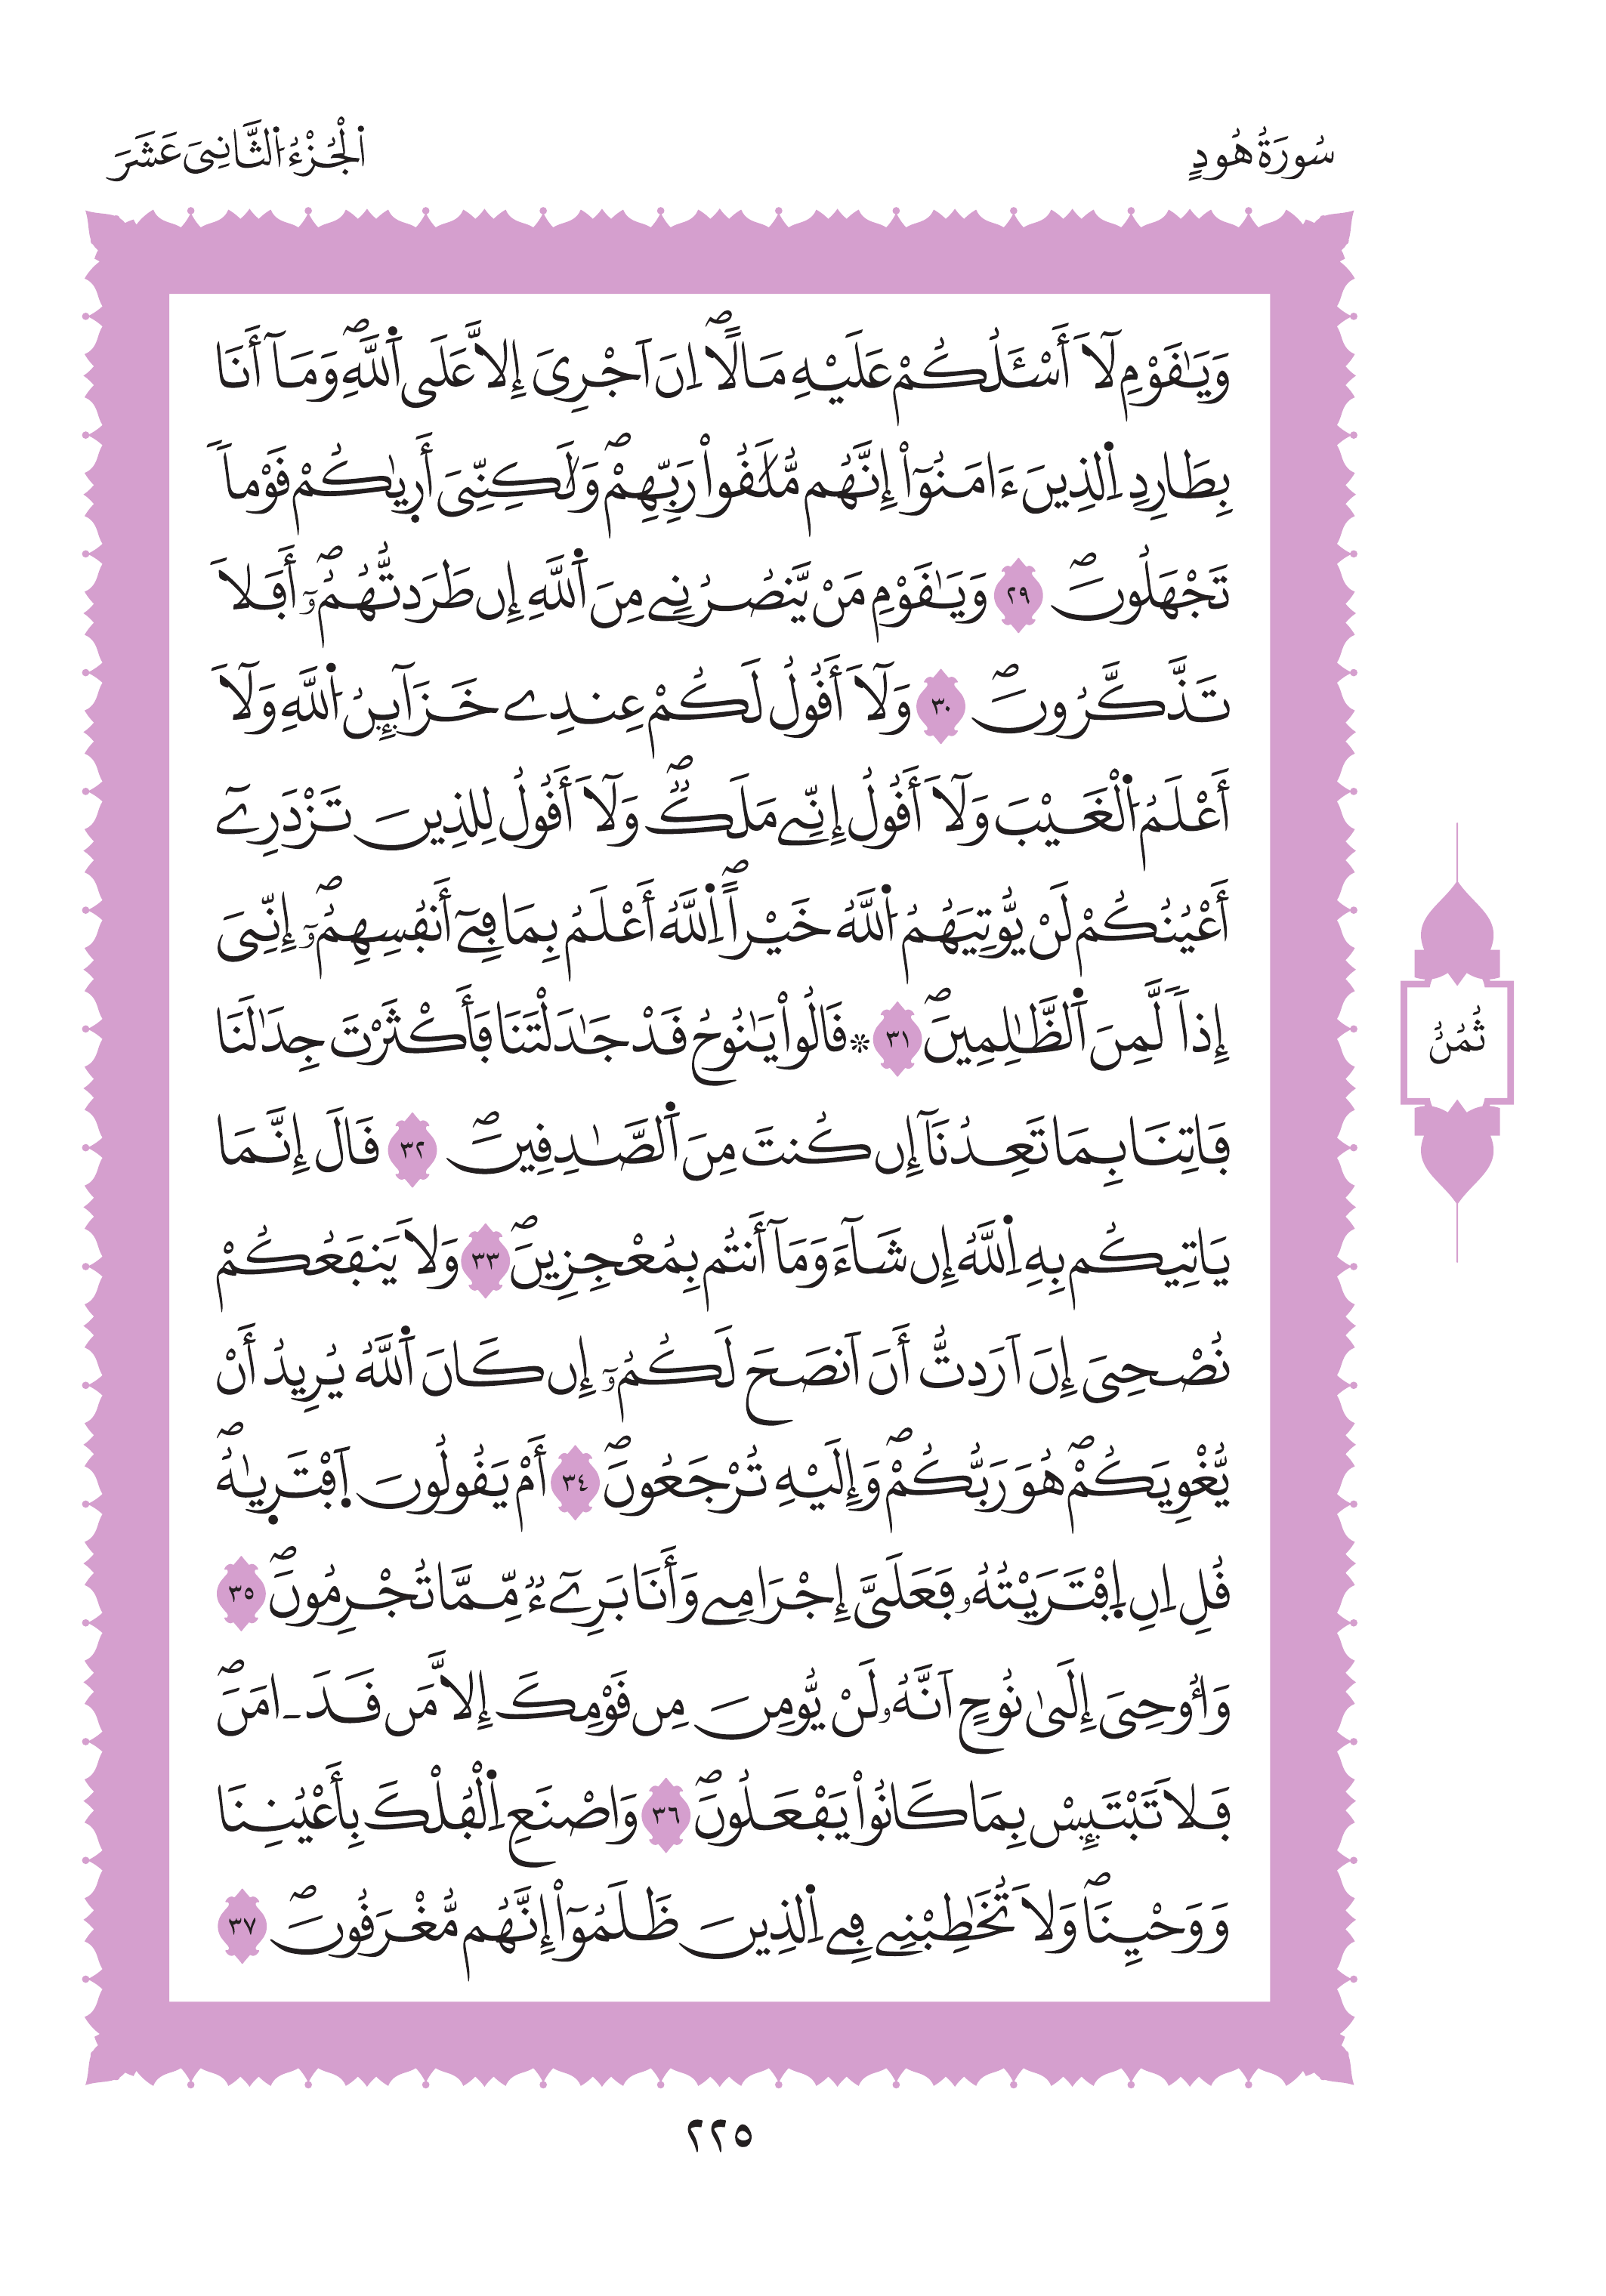 سُورَةُ هُودٍ
اَ۬لْجُزْءُ اُ۬لثَّانِيَ عَشَرَ
وَيَٰقَوْمِ لَآ أَسْـَٔلُكُمْ عَلَيْهِ مَالًاۖ اِنَ اَجْرِيَ إِلَّا عَلَي اَ۬للَّهِۖ وَمَآ أَنَا
بِطَارِدِ اِ۬لذِينَ ءَامَنُوٓاْۖ إِنَّهُم مُّلَٰقُواْ رَبِّهِمْۖ وَلَٰكِنِّيَ أَر۪يٰكُمْ قَوْماٗ
تَجْهَلُونَۖ ٢٩ وَيَٰقَوْمِ مَنْ يَّنصُرُنِے مِنَ اَ۬للَّهِ إِن طَرَدتُّهُمُۥٓۖ أَفَلَا
تَذَّكَّرُونَۖ ٣٠ وَلَآ أَقُولُ لَكُمْ عِندِے خَزَآئِنُ اُ۬للَّهِ وَلَآ
أَعْلَمُ اُ۬لْغَيْبَ وَلَآ أَقُولُ إِنِّے مَلَكٞۖ وَلَآ أَقُولُ لِلذِينَ تَزْدَرِےٓ
أَعْيُنُكُمْ لَنْ يُّوتِيَهُمُ اُ۬للَّهُ خَيْراًۖ اِ۬للَّهُ أَعْلَمُ بِمَا فِےٓ أَنفُسِهِمُۥٓۖ إِنِّيَ
إِذاٗ لَّمِنَ اَ۬لظَّٰلِمِينَۖ ٣١ ۞ قَالُواْ يَٰنُوحُ قَدْ جَٰدَلْتَنَا فَأَكْثَرْتَ جِدَٰلَنَا
فَاتِنَا بِمَا تَعِدُنَآ إِن كُنتَ مِنَ اَ۬لصَّٰدِقِينَۖ ٣٢ قَالَ إِنَّمَا
يَاتِيكُم بِهِ اِ۬للَّهُ إِن شَآءَ وَمَآ أَنتُم بِمُعْجِزِينَۖ ٣٣ وَلَا يَنفَعُكُمْ
نُصْحِيَ إِنَ اَرَدتُّ أَنَ اَنصَحَ لَكُمُۥٓ إِن كَانَ اَ۬للَّهُ يُرِيدُ أَنْ
يُّغْوِيَكُمْۖ هُوَ رَبُّكُمْۖ وَإِلَيْهِ تُرْجَعُونَۖ ٣٤ أَمْ يَقُولُونَ اَ۪فْتَر۪يٰهُۖ
قُلِ اِنِ اِ۪فْتَرَيْتُهُۥ فَعَلَيَّ إِجْرَامِے وَأَنَا بَرِےٓءٞ مِّمَّا تُجْرِمُونَۖ ٣٥
وَأُوحِيَ إِلَيٰ نُوحٍ اَنَّهُۥ لَنْ يُّومِنَ مِن قَوْمِكَ إِلَّا مَن قَدَ ـ اٰمَنَۖ
فَلَا تَبْتَئِسْ بِمَا كَانُواْ يَفْعَلُونَۖ ٣٦ وَاصْنَعِ اِ۬لْفُلْكَ بِأَعْيُنِنَا
وَوَحْيِنَاۖ وَلَا تُخَٰطِبْنِے فِے اِ۬لذِينَ ظَلَمُوٓاْ إِنَّهُم مُّغْرَقُونَۖ ٣٧
ثُمُنُ
٢٢٥